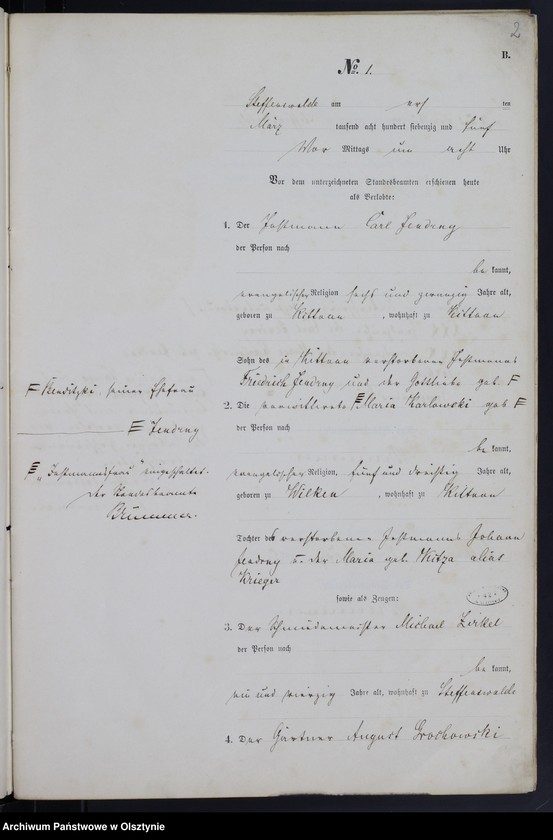 2
B.
No. 1.
Steffenswalde am ersten
März tausend acht hundert siebenzig und fünf
Vor Mittags um acht Uhr
Vor dem unterzeichneten Standesbeamten erschienen heute
als Verlobte:
1. Der Instmann Carl Jendrny
der Person nach
be kannt,
evangelischer Religion sechs und zwanzig Jahre alt,
geboren zu Wittnau, wohnhaft zu
Sohn des in verstorbenen Instmanns
Friedrich Jendrny und der Gottliebe geb. F
F seiner Ehefrau
2. Die verwittwete Maria Karlowski geb
Jendrny
der Person nach
be kannt,
"Instmannsfrau" eingeschaltet.
Der Standesbeamte
evangelischer Religion, fünf und dreißig Jahre alt,
geboren zu Wilken, wohnhaft zu
Tochter des verstorbenen Instmanns Johann
Jendrny u. der Maria geb. alias
Krieger
sowie als Zeugen:
3. Der Schmiedemeister Michael Zirkel
der Person nach
be kannt,
ein und vierzig Jahre alt, wohnhaft zu Steffenswalde
4. Der Gärtner August Grochowski
Archiwum Państwowe w Olsztynie